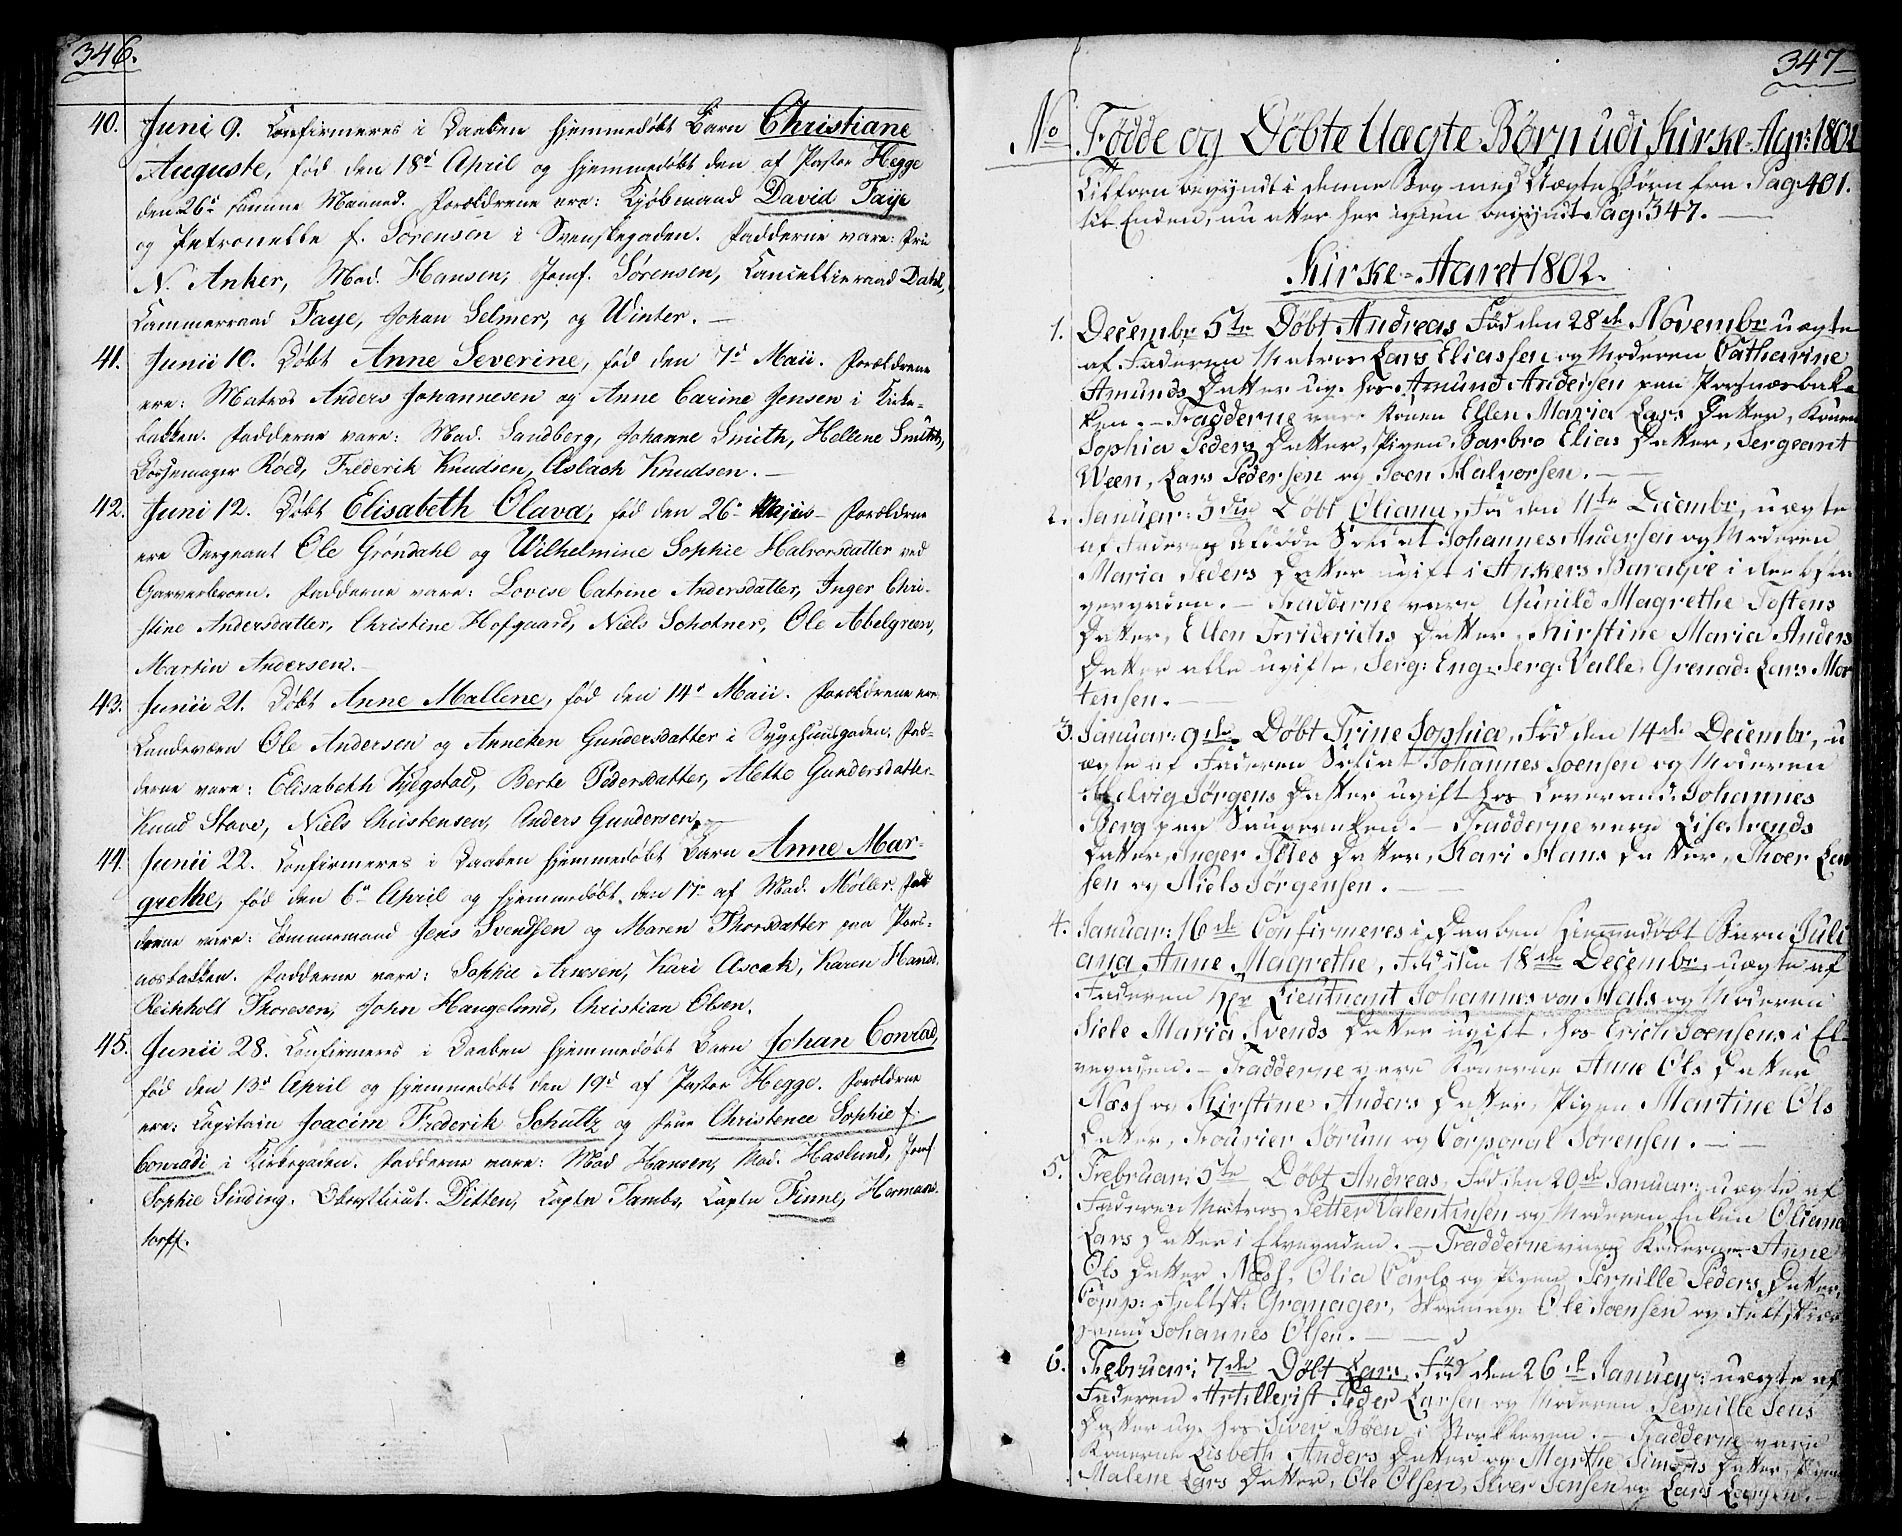 346.
40. Juni 9. Confirmeres i Daaben hjemmedøbt Barn Christiane
Auguste, fød den 18d April og hjemmedøbt den af Pastor Hegge
den 26d samme Maaned. Forældrene ere: Kjøbmand David Faye
og Petronelle f. Sørensen i Svenskegaden. Fadderne vare: Fru
N. Anker, Mad. Hansen, Jomf. Sørensen, Cancellieraad Dahl,
Kammerraad Faye, Johan Selmer, og Winter. —
41. Junii 10. Døbt Anne Severine, fød den 7d Maii. Forældrene
ere: Matros Anders Johannesen og Anne Carine Jensen i Kirke-
bakken. Fadderne vare: Mad. Sandberg, Johanne Smith, Hellene Smith,
Bøssemager Røed, Frederik Knudsen, Aslach Knudsen. —
42. Juni 12. Døbt Elisabeth Olava, fød den 26d Majus Forældrene
ere Sergeant Ole Grøndahl og Wilhelmine Sophie Halvorsdatter ved
Garverbroen. Fadderne vare: Lovise Catrine Andersdatter, Inger Chri-
stine Andersdatter, Christine Hofgaard, Niels Schotner, Ole Abelgreen,
Martin Andersen. —
43. Junii 21. Døbt Anne Mallene, fød den 14d Maii. Forældrene ere
Landeværn Ole Andersen og Anneken Gundersdatter i Sygehuusgaden. Fad-
derne vare: Elisabeth Kjegstad, Berte Pedersdatter, Alethe Gundersdatter
Knud Stave, Niels Christensen, Anders Gundersen. —
44. Junii 22. Confirmeres i Daaben hjemmedøbt Barn Anne Mar-
grethe, fød den 6d April og hjemmedøbt den 17d af Mad. Møller.
vare: Jens Svendsen og Maren Thorsdatter paa Pors-
næsbakken. Fadderne vare: Sophie Arnesen, Kari Ascak, Karen Hansd.
Reinholt Thoresen, John Haugelund, Christian Olsen.
45. Junii 28. Confirmeres i Daaben hjemmedøbt Barn Johan Conrad,
fød den 13d April og hjemmedøbt den 19d af Pastor Hegge. Forældrene
ere: Capitain Joacim Frederik Schultz og Frue Christence Sophie f.
Conradi i Kirkegaden. Fadderne vare: Mad Hansen, Mad. Haslund, Jomf
Sophie Sinding. Oberstlieut. Ditten, Captn Tambs, Captn Finne, Herman
torff.
347
No Fødde og Døbte Uægte Børn udi Kirke-Aar: 1802
Tilforn begyndt i denne Bog med Uægte Børn fra Pag: 401.
til Enden, nu atter her igien begyndt Pag: 347. —
Kirke-Aaret 1802.
1. Decembr 5te Døbt Andreas Fød den 28de Novembr uægte
af Faderen Matros Lars Eliassen og Moderen Catharine
Amunds Datter ug. hos Amund Andersen paa Porsnæsbak-
ken. — Fadderne vare Konen Ellen Maria Lars Datter, Konen
Sophia Peders Datter, Pigen Barbro Elias Datter, Sergeant
Ween, Lars Pedersen og Joen Halvorsen. —
2. Januar: 3die Døbt Oliana, Fød den 11te Decembr, uægte
af Faderen afdøde Soldat Johannes Andersen og Moderen
Maria Peders Datter ugift i Ankers Baraque i
gergaden. — Fadderne vare Gunild Magrethe Tostens
Datter, Ellen Friderichs Datter, Kirstine Maria Anders
Datter alle ugifte, Serg: Eng, Serg: Valle, Grenad: Lars Mor
tensen. —
3. Januar: 9de Døbt Trine Sophia, Fød den 14de Decembr, u
ægte af Faderen Soldat Johannes Joensen og Moderen
Hedvig Jørgens Datter ugift hos Johannes
Berg paa Saugrenken. — Fadderne vare Lise Arends
Datter, Inger Poles Datter, Kari Hans Datter, Thoer Lar
sen og Niels Jørgensen. —
4. Januar: 16de Confirmeres i Daaben Hiemmedøbt Barn Juli
ana Anne Magrethe, Fød den 18de Decembr, uægte af
Faderen Hr Lieutnant Johannes von Hals og Moderen
Siele Maria Svends Datter ugift hos Erich Joensens i El-
vegaden. — Fadderne vare Konerne Anne Ols Datter
Næss og Kirstine Anders Datter, Pigen Martine Ols
Datter, Fourier Sørum og Corporal Sørensen. —
5. Februar: 5te Døbt Andreas, Fød den 20de Januar: uægte af
Faderen Matros Petter Valentinsen og Moderen Enken Oliana
Lars Datter i Elvegaden. — Fadderne vare Konerne Anne
Ols Datter Næss, Olia Carls og Pigen Pernille Peders Datter,
Comp: Feltsk: Granager, Skomag: Ole Joensen og
Johannes Olsen. —
6. Februar: 7de Døbt Lars, Fød den 26de Januar: uægte af
Faderen Artillerist Peder Larsen og Moderen Pernille Jens
Datter ug. hos Siver Bøen i Storkleven. — Fadderne vare
Konerne Lisbeth Anders Datter og Marthe Simens Datter, Pigen
Malene Lars Datter, Ole Olsen, Siver Jensen og Lars Larsen. —